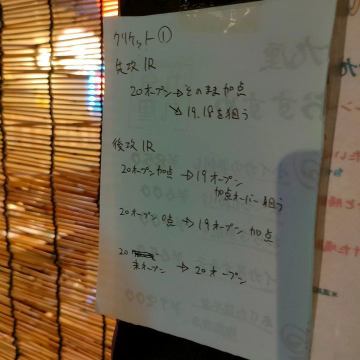 クリケット①
先攻 1R
20オープン→そのまま加点
↘19.18を狙う
後攻 1R
20オープン加点→19オープン
加点オーバー狙う
20オープン0点→19オープン 加点
20
未オープン→20オープン